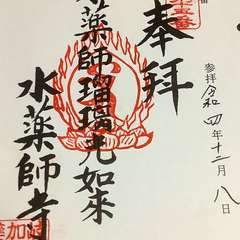 奉拝
参拝令和四年十二月八日
薬師瑠璃光如来
水薬師寺